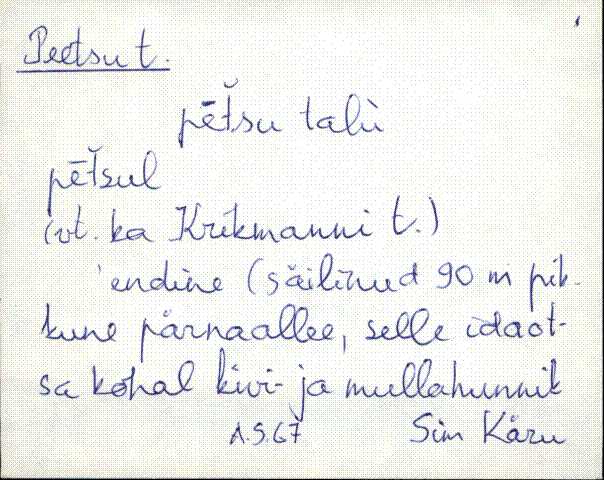 Peetsu t.
pēt̆su talù
pēt̆sul
(vt. ka Krikmanni t.)
endine (säilinud 90 m pik-
kune pärnaallee, selle idaot-
sa kohal kivi- ja mullahunnik
A.S.67 Sim Käru